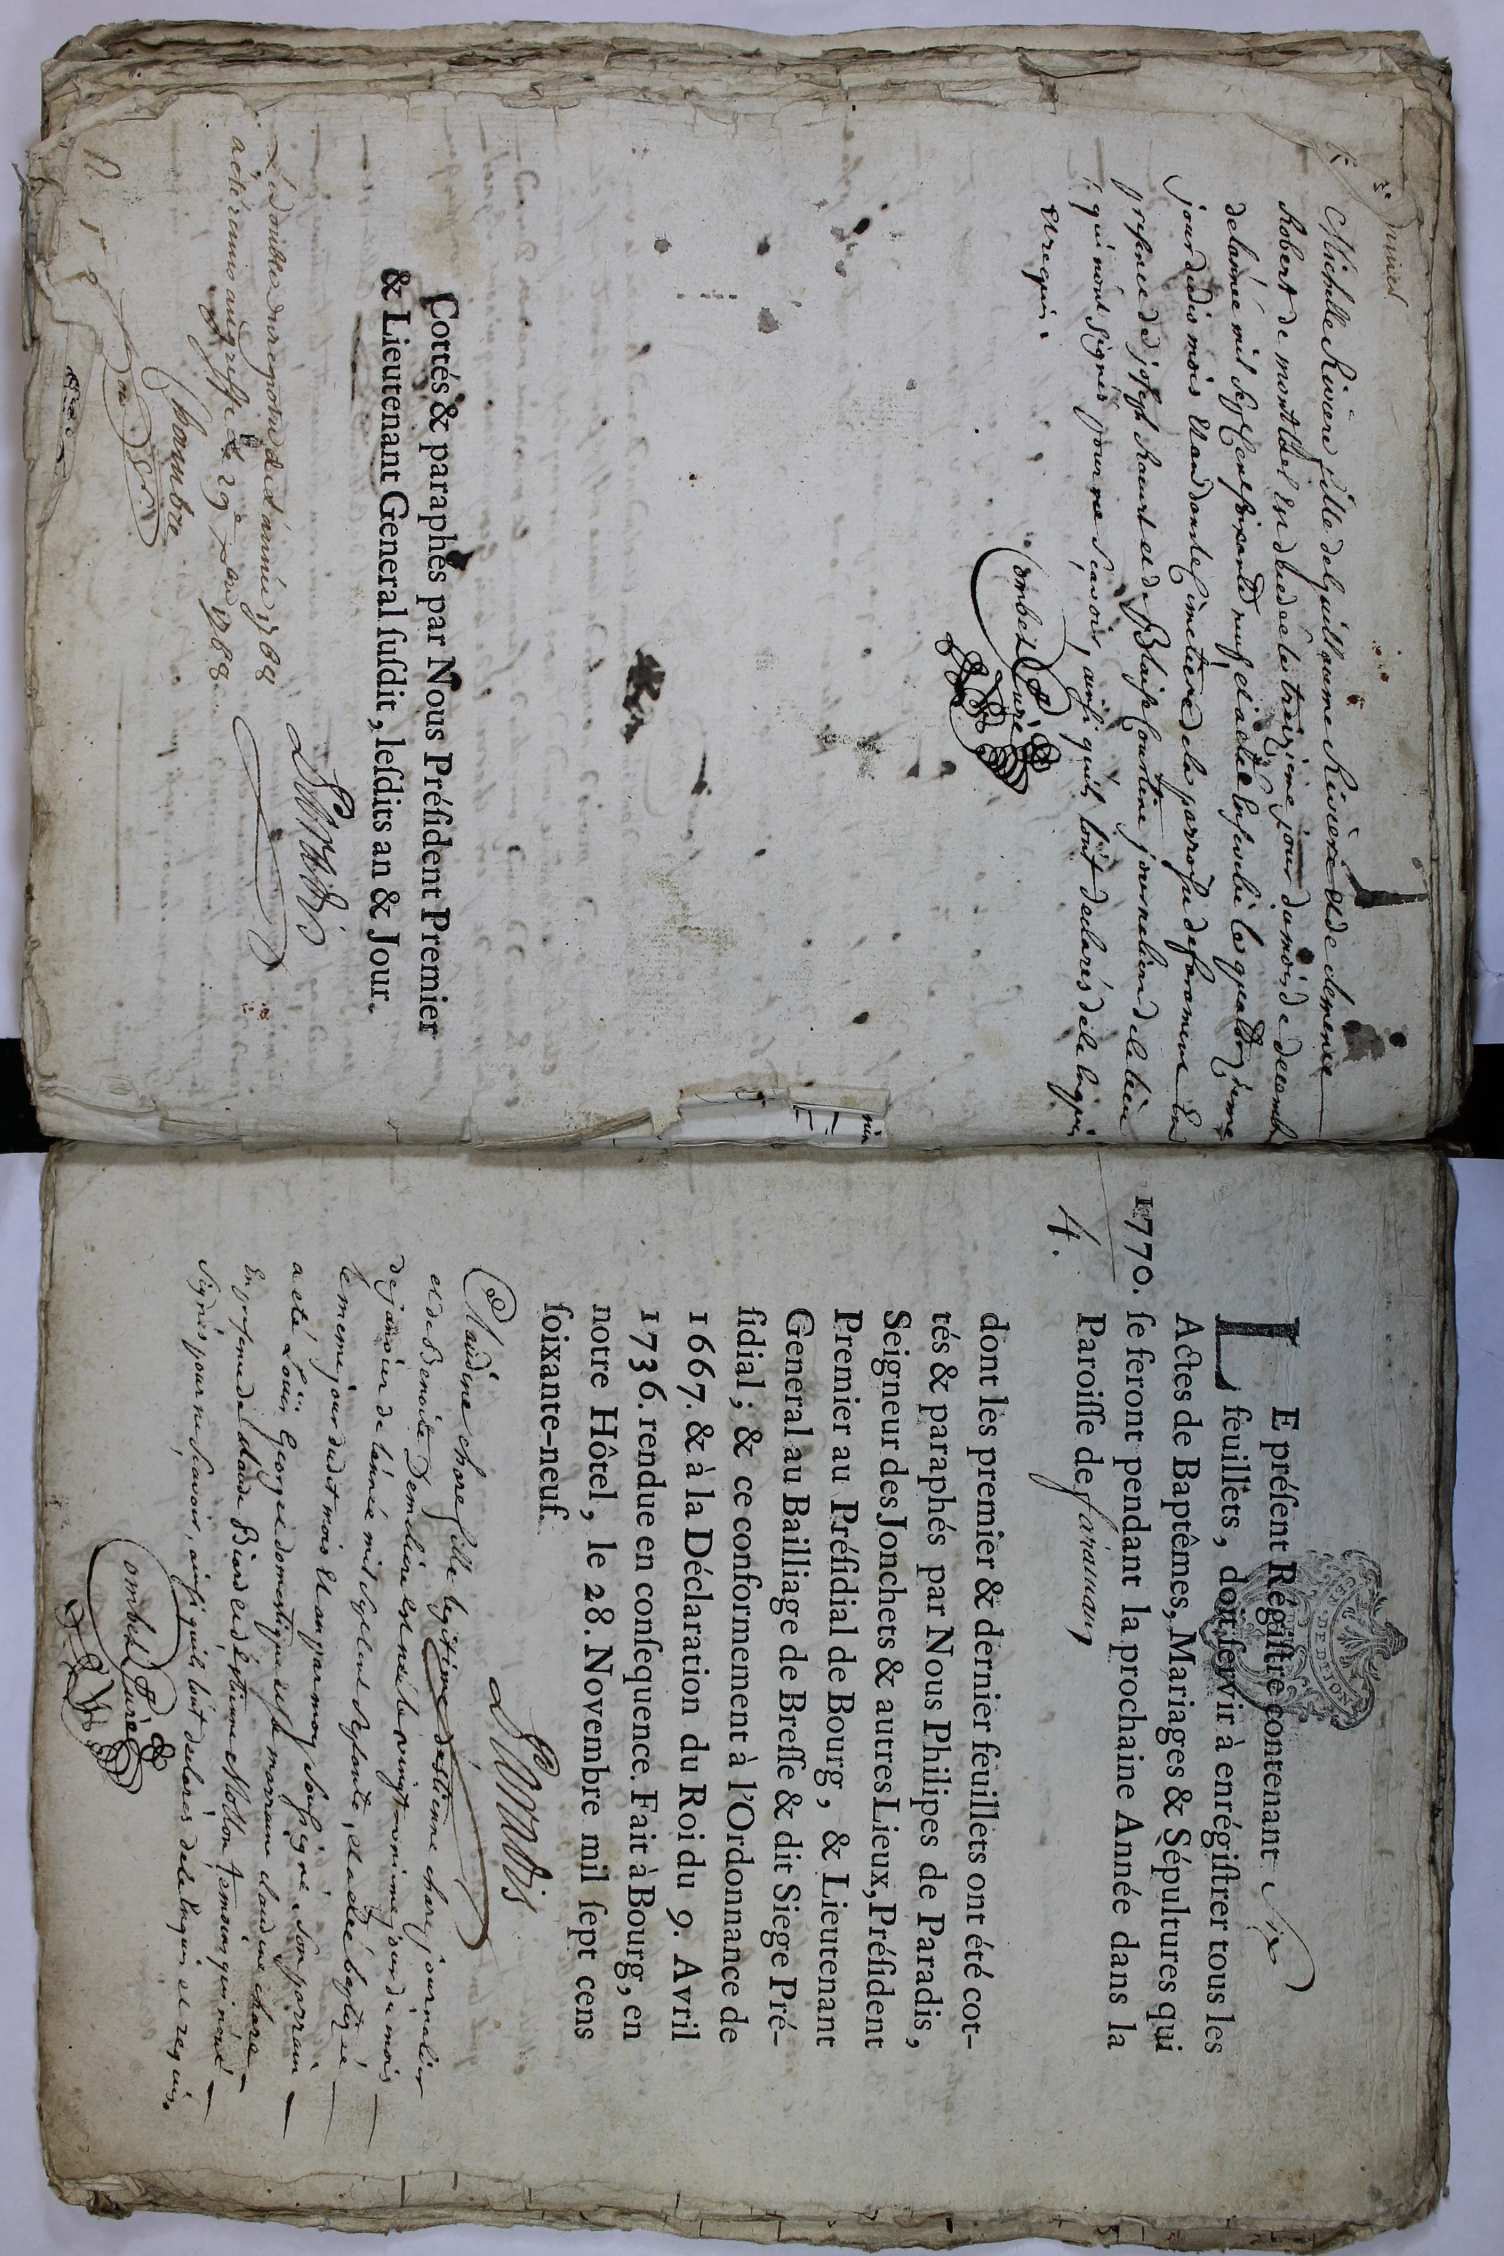 Michelle Riviere fille de guillaume Riviere et de clemence
Robert de montbel est decedée le treizieme jour du mois de decemb
de lannée mil sept cent soixante neuf et a eté Ensevelie le quatorzieme
jour dudis mois et an dans le Cimetiere de la parroisse de faramans En
presence de joseph et de Blaise journaliers de ce lieu
qui n'ont signés pour ne scavoir, ainsi quils sont declarés de ce Enquis
et requis.
Combet Curé
Cottés & paraphés par Nous Préſident Premier
& Lieutenant General ſuſdit, leſdits an & Jour.
Paradis
acte remis au greffe le 29
1770.
4.
LE préſent Régiſtre contenant Six
feuillets, doit ſervir à enrégiſtrer tous les
Actes de Baptêmes, Mariages & Sépultures qui
ſe feront pendant la prochaine Année dans la
Paroiſſe de faramans
dont les premier & dernier feuillets ont été cot-
tés & paraphés par Nous Philipes de Paradis,
Seigneur des Jonchets & autres Lieux, Préſident
Premier au Préſidial de Bourg, & Lieutenant
General au Bailliage de Breſſe & dit Siege Pré-
ſidial; & ce conformement à l'Ordonnance de
1667. & à la Déclaration du Roi du 9. Avril
1736. rendue en conſequence. Fait à Bourg, en
notre Hôtel, le 28. Novembre mil ſept cens
ſoixante-neuf.
Paradis
Claudine chare fille legitime d'estienne chare journalier
et de Benoite Demeliere est née le vingt onzieme jour du mois
de janvier de lannée mil sept cent septante, et a eté baptizée
le meme jour dudit mois et an par moy soussigné, son parrain
a eté Loüis George domestique et sa marraine claudine chare
En presence de claude Biard et d'estienne Mollon temoins qui n'ont
signés pour ne scavoir, ainsi quils sont declarés de ce Enquis et requis.
Combet Curé